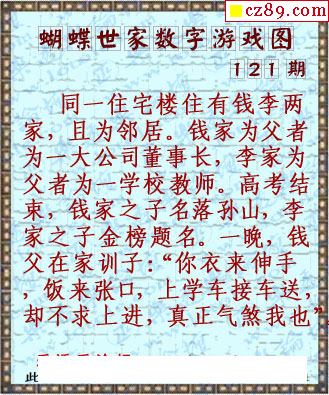 cz89.com
蝴蝶世家数字游戏图
121期
同一住宅楼住有钱李两
家，且为邻居。钱家为父者
为一大公司董事长，李家为
父者为一学校教师。高考结
束，钱家之子名落孙山，李
家之子金榜题名。一晚，钱
父在家训子：“你衣来伸手
，饭来张口，上学车接车送，
却不求上进，真正气煞我也”
此